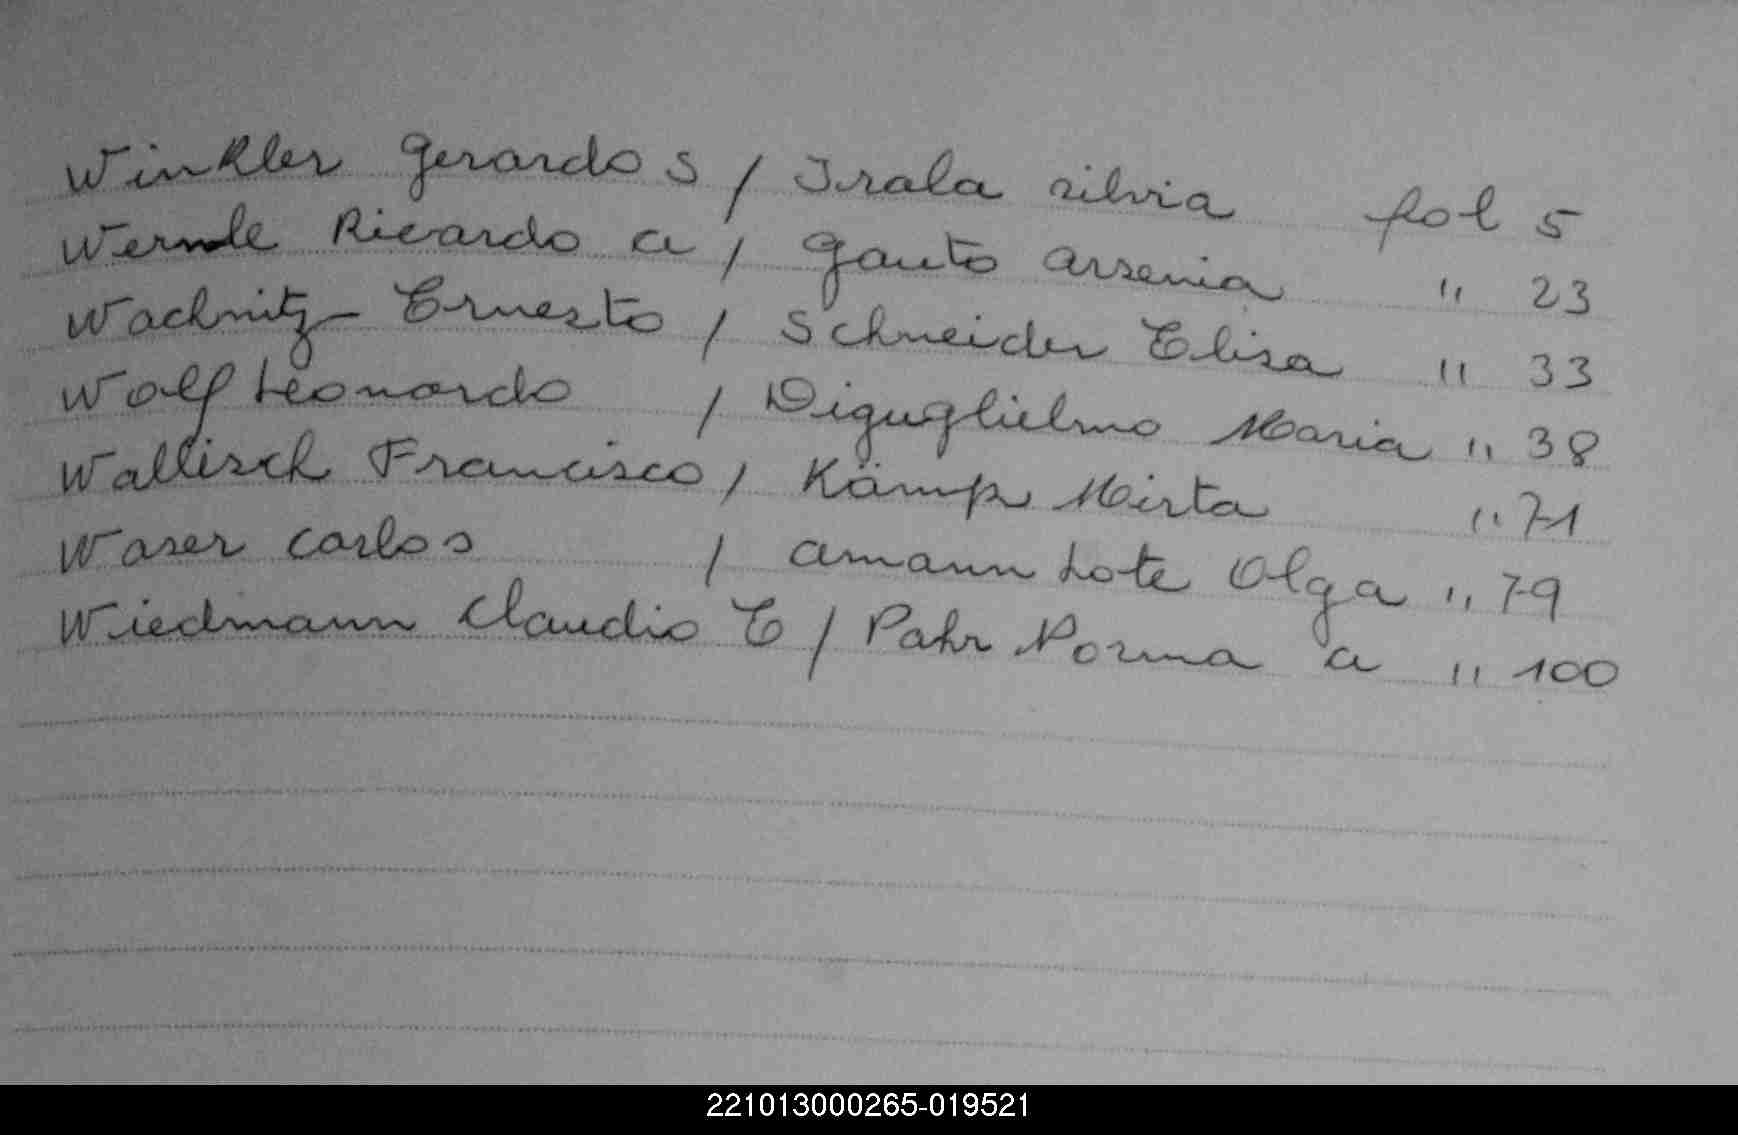 Winkler Gerardo S / Irala Silvia fol 5
Wernle Ricardo A / Gauto Arsenia " 23
Wachnitz Ernesto / Schneider Elisa " 33
Wolf Leonardo / Diguglielmo Maria " 38
Wallisch Francisco / Kämp Mirta " 71
Waser Carlos / Amann Lote Olga " 79
Wiedmann Claudio E / Pahr Norma A " 100
221013000265-019521